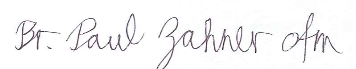 Br. Paul Zahner ofm